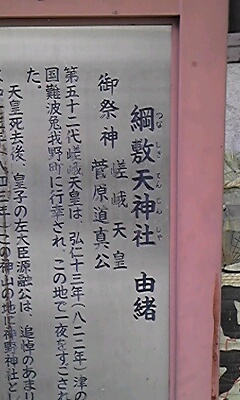 綱敷天神社 由緒
つな しき てん じん しゃ
御祭神 嵯峨天皇
菅原道真公
第五十二代嵯峨天皇は、弘仁十三年(八二二年)津の
国難波兎我野町に行幸され、この地で一夜をすごされ
た。
天皇死去後、皇子の左大臣源融公は、追悼のあまり
この神山の地に神野神社とし